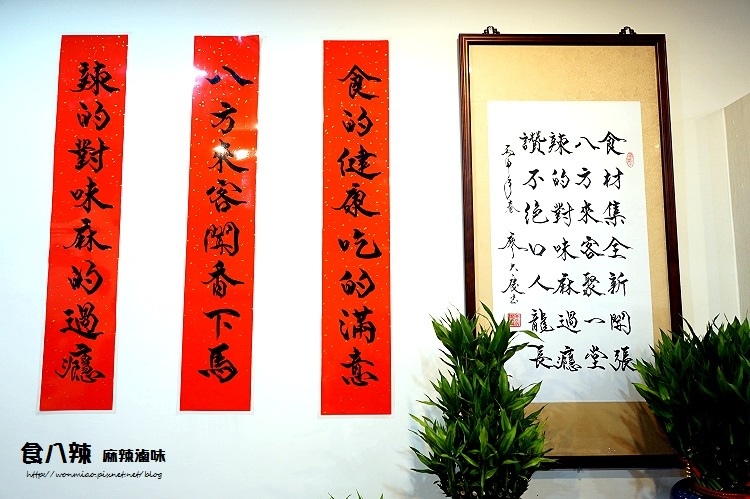 食的健康吃的滿意
八方來客聞香下馬
辣的對味麻的過癮
食材集全新開張
八方來客聚一堂
辣的對味麻過癮
讚不绝口人龍長
食八辣 麻辣滷味
http://wonmiao.pixnet.net/blog